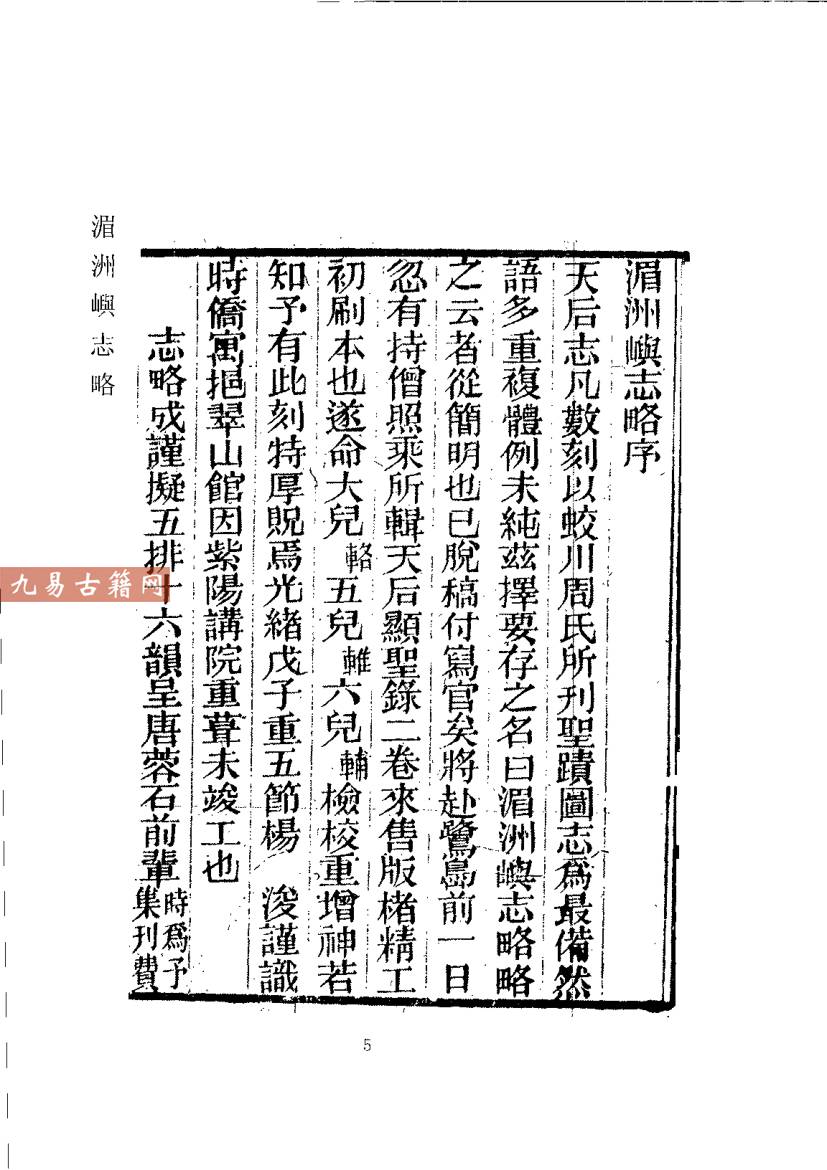 湄洲嶼志略序
天后志凡數刻以蛟川周氏所刋聖蹟圖志爲最備然
語多重複體例未純茲擇要存之名曰湄洲嶼志略略
之云者從簡明也已脫稿付寫官矣將赴鷺島前一日
忽有持僧照乘所輯天后顯聖錄二卷來售版楮精工
初刷本也遂命大兒輅五兒輫六兒輔檢校重增神若
知予有此刻特厚貺焉光緒戊子重五節楊浚謹識
時僑寓挹翠山館因紫陽講院重葺未竣工也
志略成謹擬五排十六韻呈唐蓉石前輩時爲予
集刋費
湄洲嶼志略
九易古籍网
5